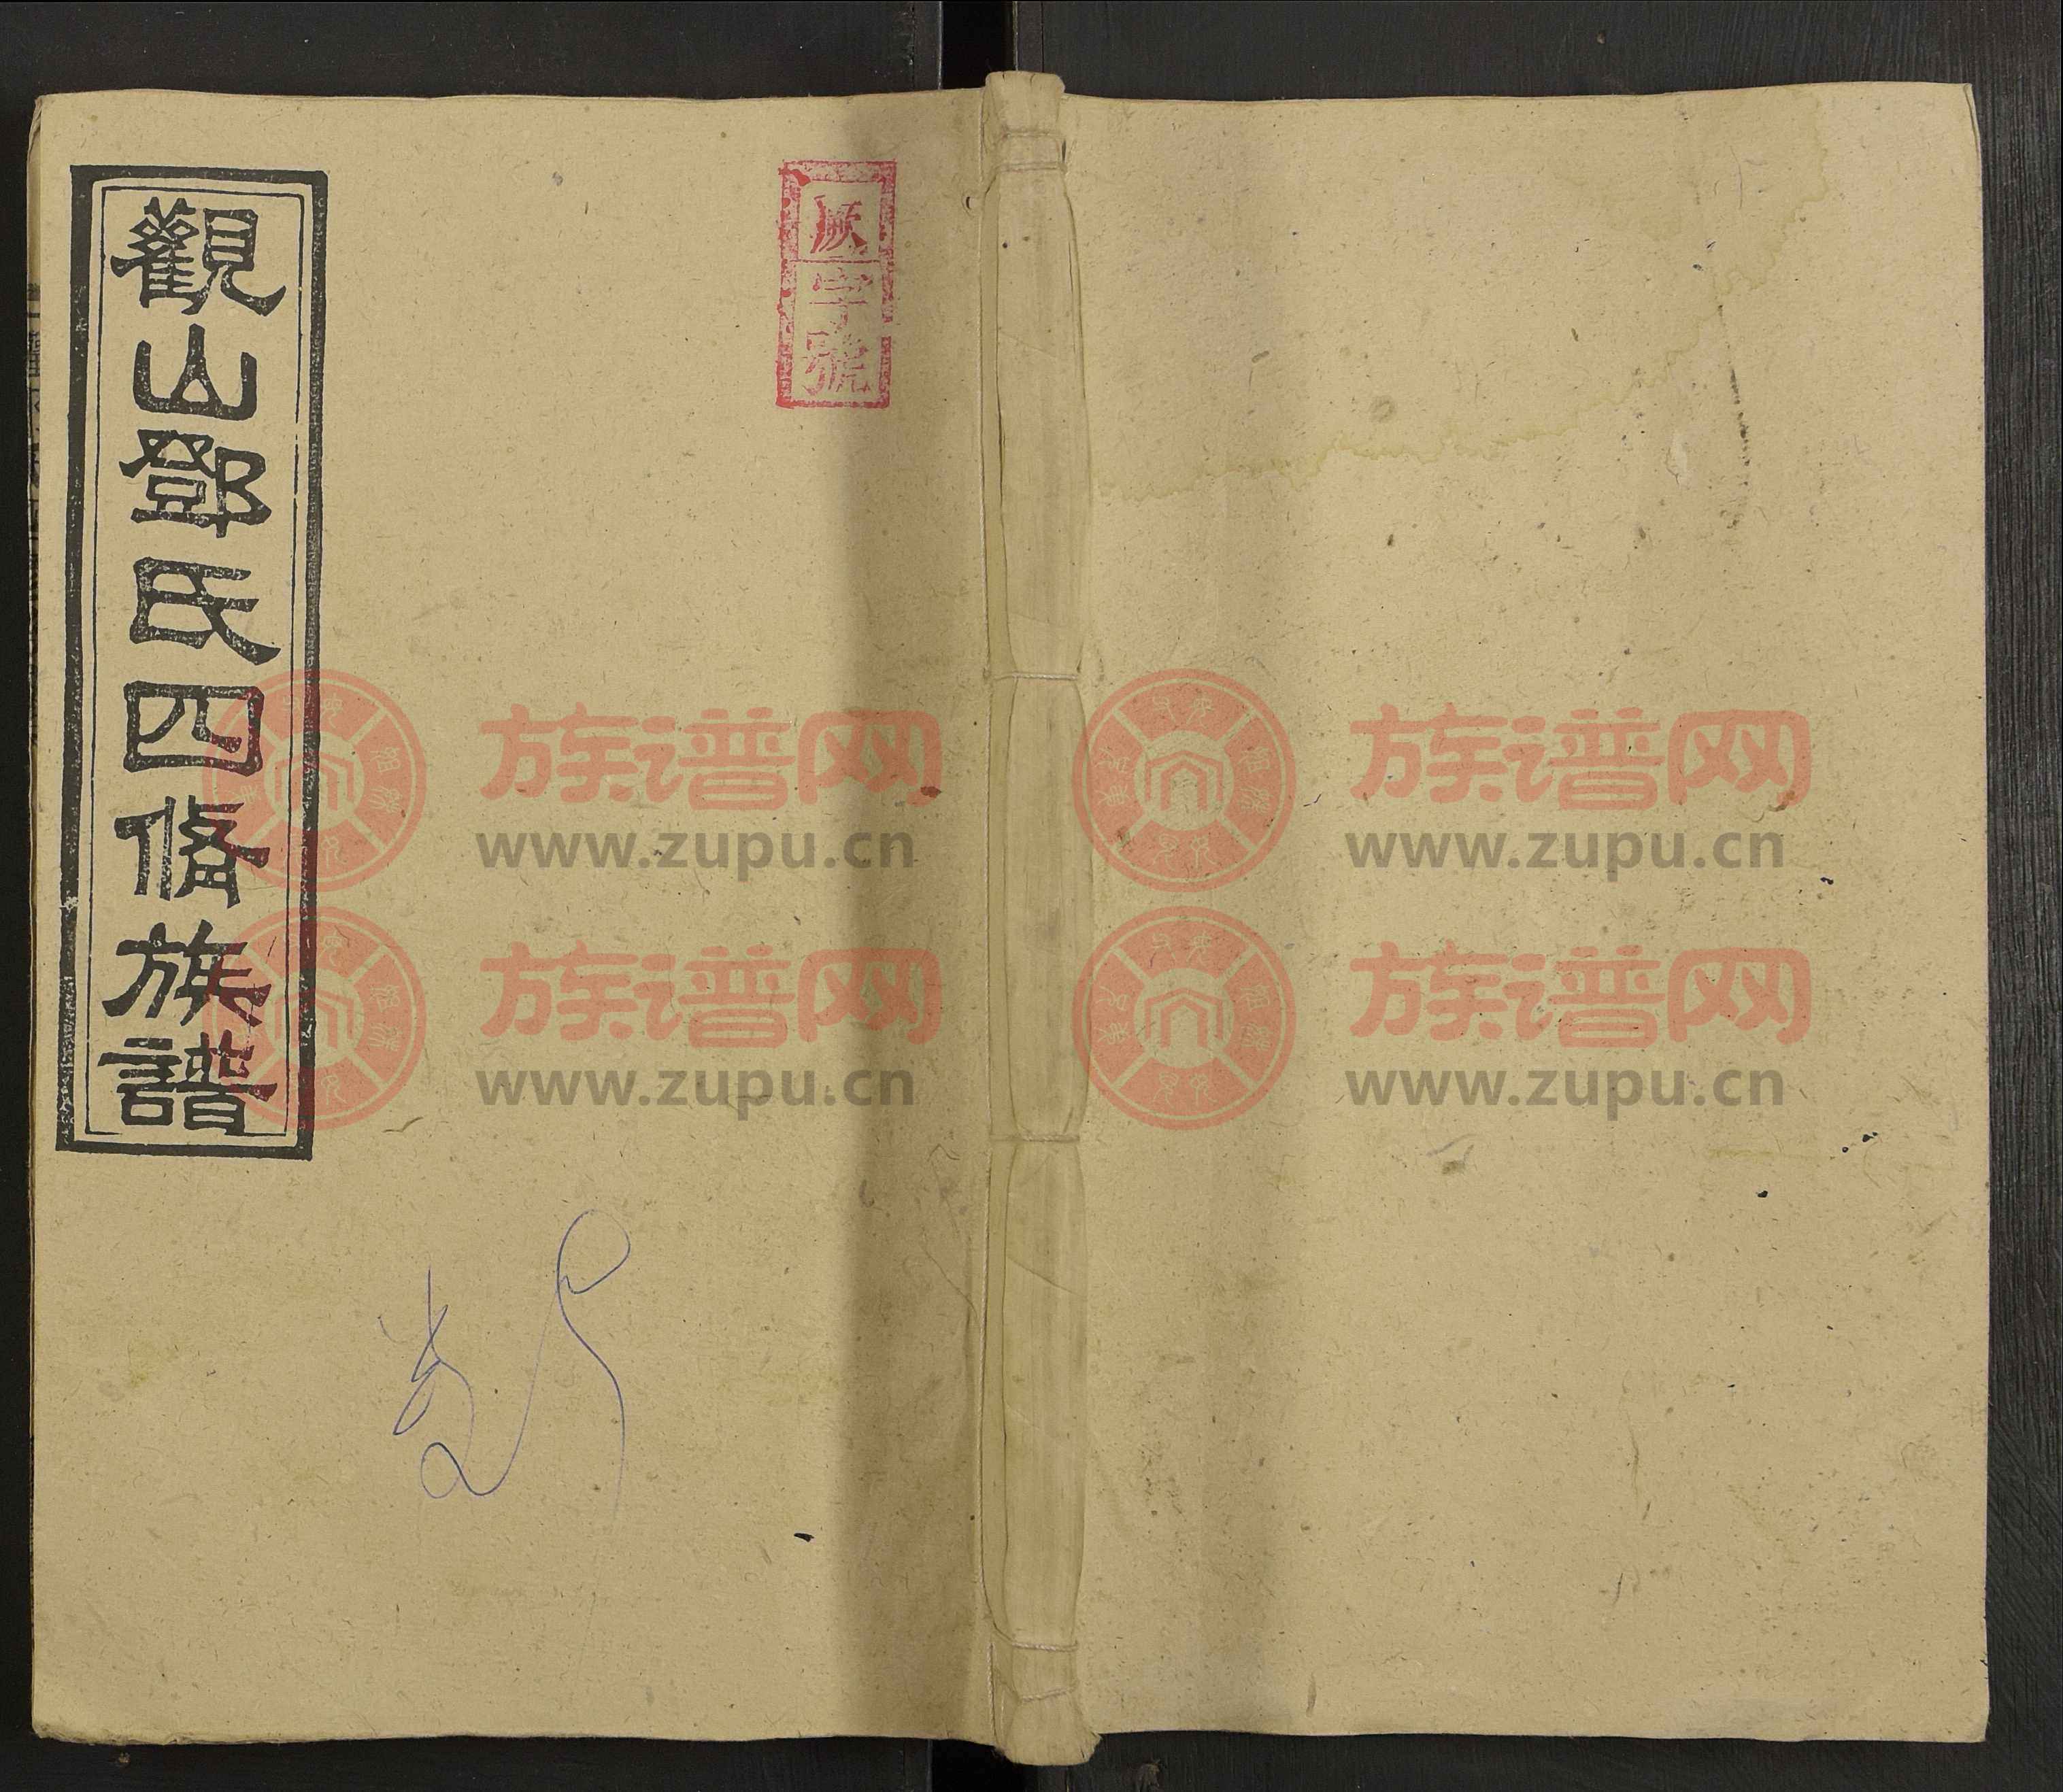 觀山鄧氏四脩族譜
厥字號
族谱网
www.zupu.cn
族谱网
www.zupu.cn
族谱网
www.zupu.cn
族谱网
www.zupu.cn